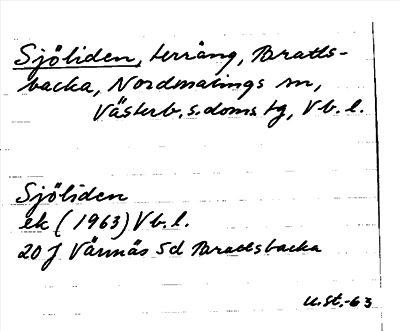 Sjöliden, terräng, Bratts-
backa, Nordmalings sn,
Västerb. s. doms tg, Vb. l.
Sjöliden
ek (1963) Vb. l.
20 J Vännäs 5d Brattsbacka
U.St.-63